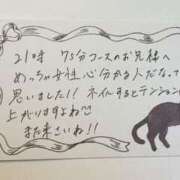 21時 75分コースのお兄様へ
めっちゃ女性心分かる人だなって
思いました!! ネイルするとテンション
上がりますよね
また来てね!!